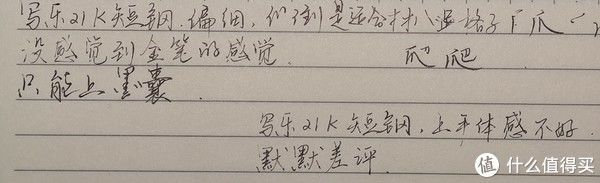 写乐21K短钢,偏细,们倒是适合格子爪
没感觉到金笔的感觉. 爪 爬
只能上墨囊.
写乐21K短钢,上手体感不好.
默默差评.
值 什么值得买